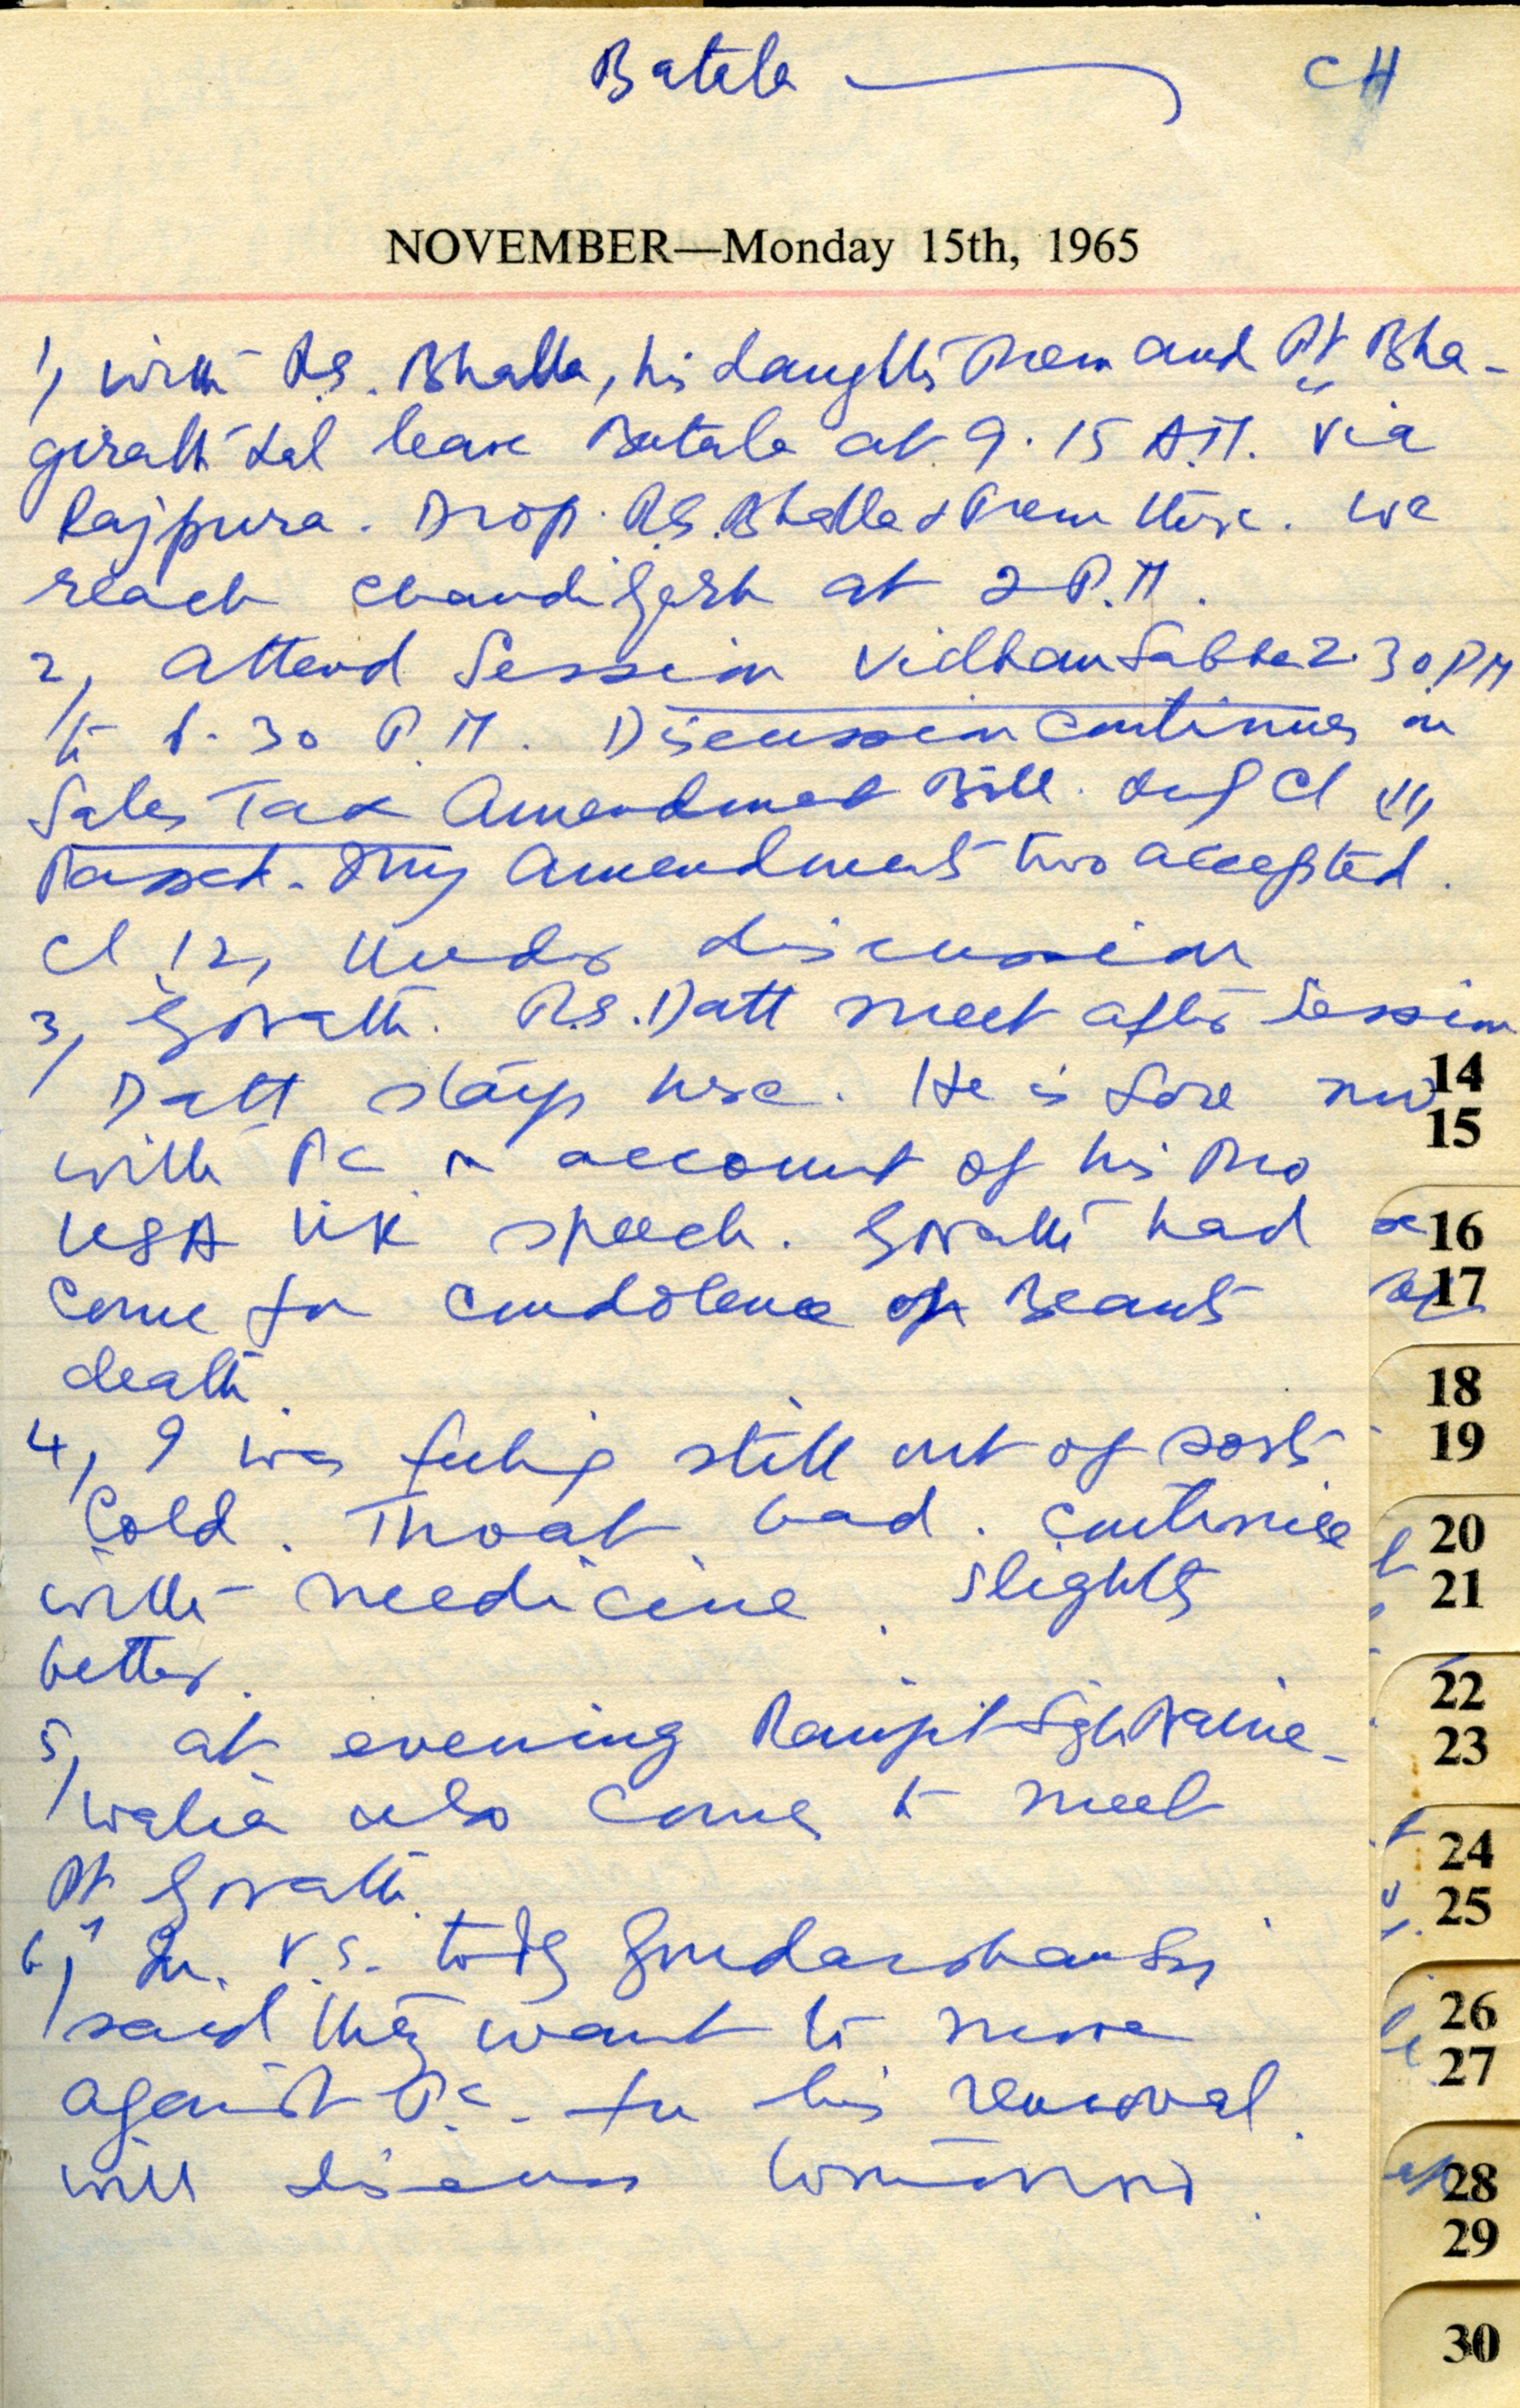 Batala CH
NOVEMBER—Monday 15th, 1965
1, with R.S. Bhalla, his daughter Prem and Pt Bha-
girath Lal leave Batala at 9.15 A.M. via
Rajpura. Drop R.S. Bhalla & Prem there. We
reach Chandigarh at 2 P.M.
2, Attend Session Vidhan Sabha 2.30 PM
to 6.30 P.M. Discussion continues on
Sales Tax Amendment Bill. Cl 11,
Passed. My Amendments two accepted.
Cl 12, under discussion
3, R.S. Datt meet after Session
Datt stays here. He is sore now
with PC on account of his Pro
USA UK speech. had
come for condolence of Beant's
death.
4, I was feeling still out of sorts
Cold. Throat bad. Continue
with medicine. Slightly
better.
5, at evening Ranjit Sgh
walia also comes to meet
Pt
6, In V.S. today
said they want to move
against P.C. for his removal.
will discuss tomorrow.
14
15
16
17
18
19
20
21
22
23
24
25
26
27
28
29
30